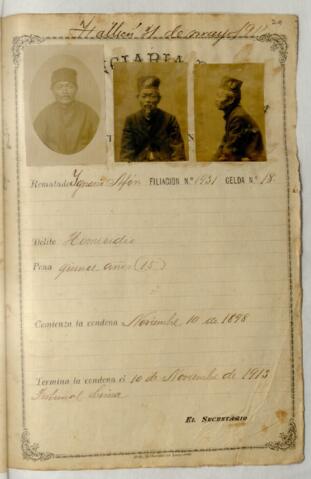 de mayo
29
Rematado Ignacio FILIACION N.° 1931 CELDA N.° 18
Delito Homicidio
Pena quince años (15)
Comienza la condena Noviembre 10 de 1898
Termina la condena el 10 de Noviembre de 1913
Tribunal Lima
EL SECRETARIO